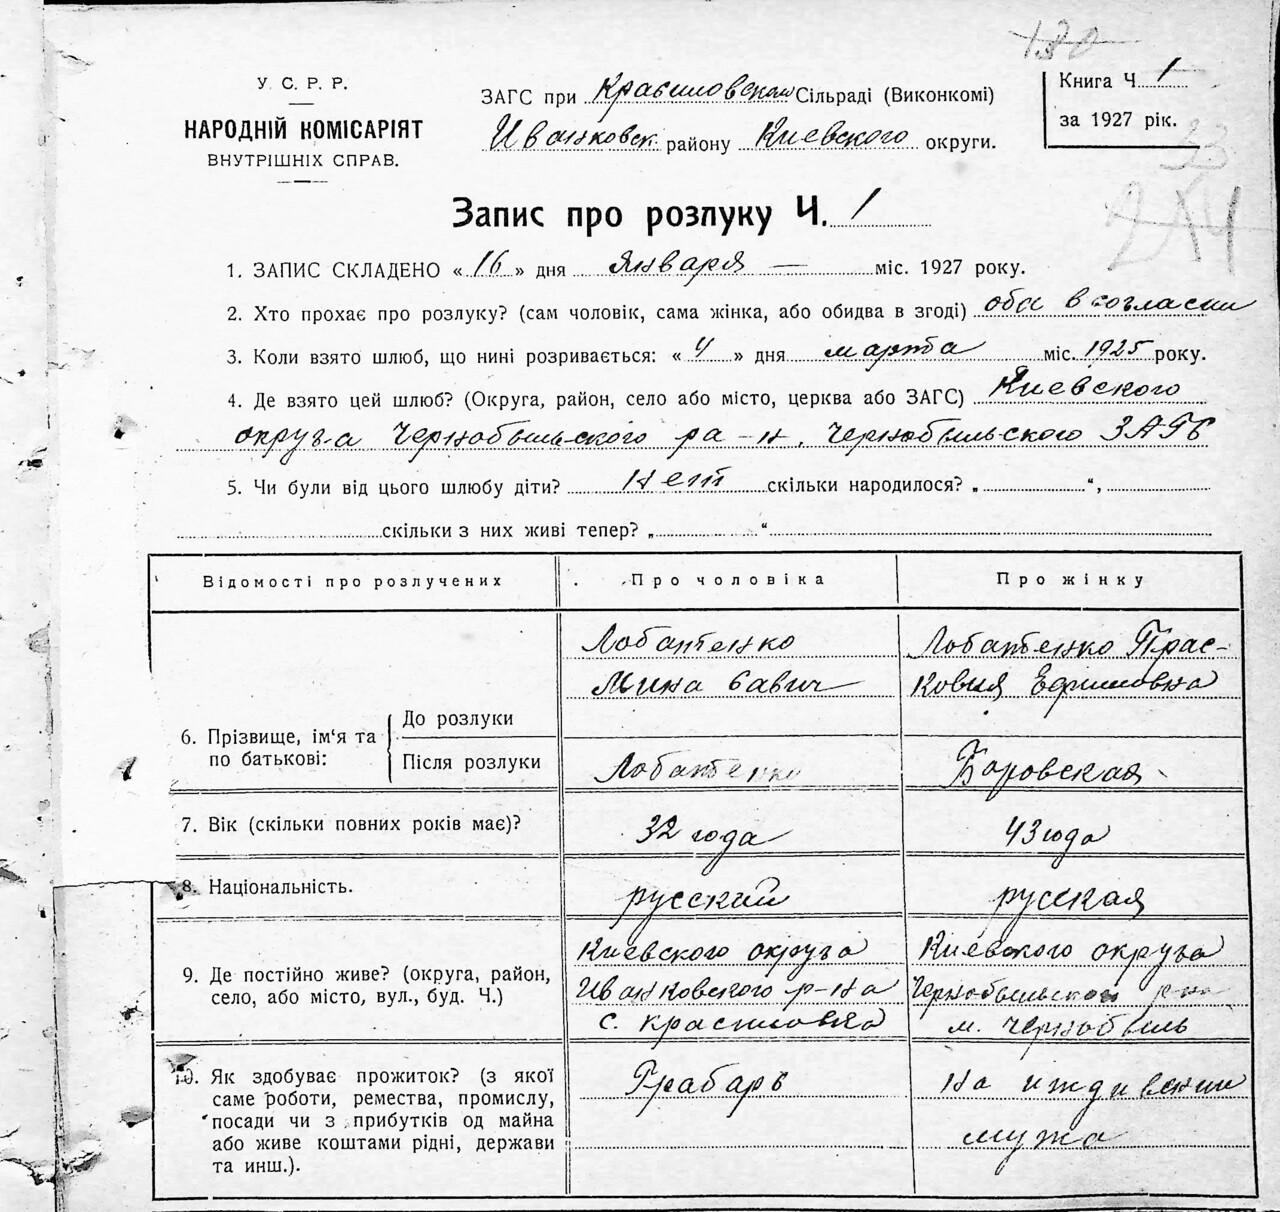 180
У. С. Р. Р.
НАРОДНІЙ КОМІСАРІЯТ
ВНУТРІШНІХ СПРАВ.
ЗАГС при Красиловском Сільраді (Виконкомі)
Иванковск. району Киевского округи.
Книга Ч. 1
за 1927 рік.
33
Запис про розлуку Ч. 1
1. ЗАПИС СКЛАДЕНО « 16 » дня Января — міс. 1927 року.
2. Хто прохає про розлуку? (сам чоловік, сама жінка, або обидва в згоді) оба в согласии
3. Коли взято шлюб, що нині розривається: « 4 » дня марта міс. 1925 року.
4. Де взято цей шлюб? (Округа, район, село або місто, церква або ЗАГС) Киевского
округа Чернобыльского ра-н, Чернобыльского ЗАГС
5. Чи були від цього шлюбу діти? Нет скільки народилося? „ “,
скільки з них живі тепер? „ “
Відомості про розлучених
Про чоловіка
Про жінку
6. Прізвище, ім‘я та по батькові:
До розлуки
Лобатенко
Мина Савич
Лобатенко Прас-
ковия Ефимовна
Після розлуки
Лобатенко
Боровская
7. Вік (скільки повних років має)?
32 года
43 года
8. Національність.
русский
русская
9. Де постійно живе? (округа, район,
село, або місто, вул., буд. Ч.)
Киевского округа
Иванковского р-на
с. Красиловка
Киевского округа
Чернобыльского р-на
м. Чернобыль
10. Як здобуває прожиток? (з якої
саме роботи, ремества, промислу,
посади чи з прибутків од майна
або живе коштами рідні, держави
та инш.).
Грабарь
на иждивении
мужа